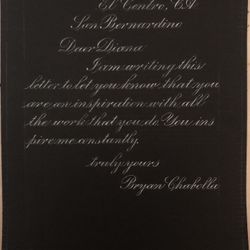 El Centro, CA
San Bernardino
Dear Diana
I am writing this
letter to let you know that you
are an inspiration with all
the work that you do. You ins
pire me constantly.
truly yours
Bryan Chabolla